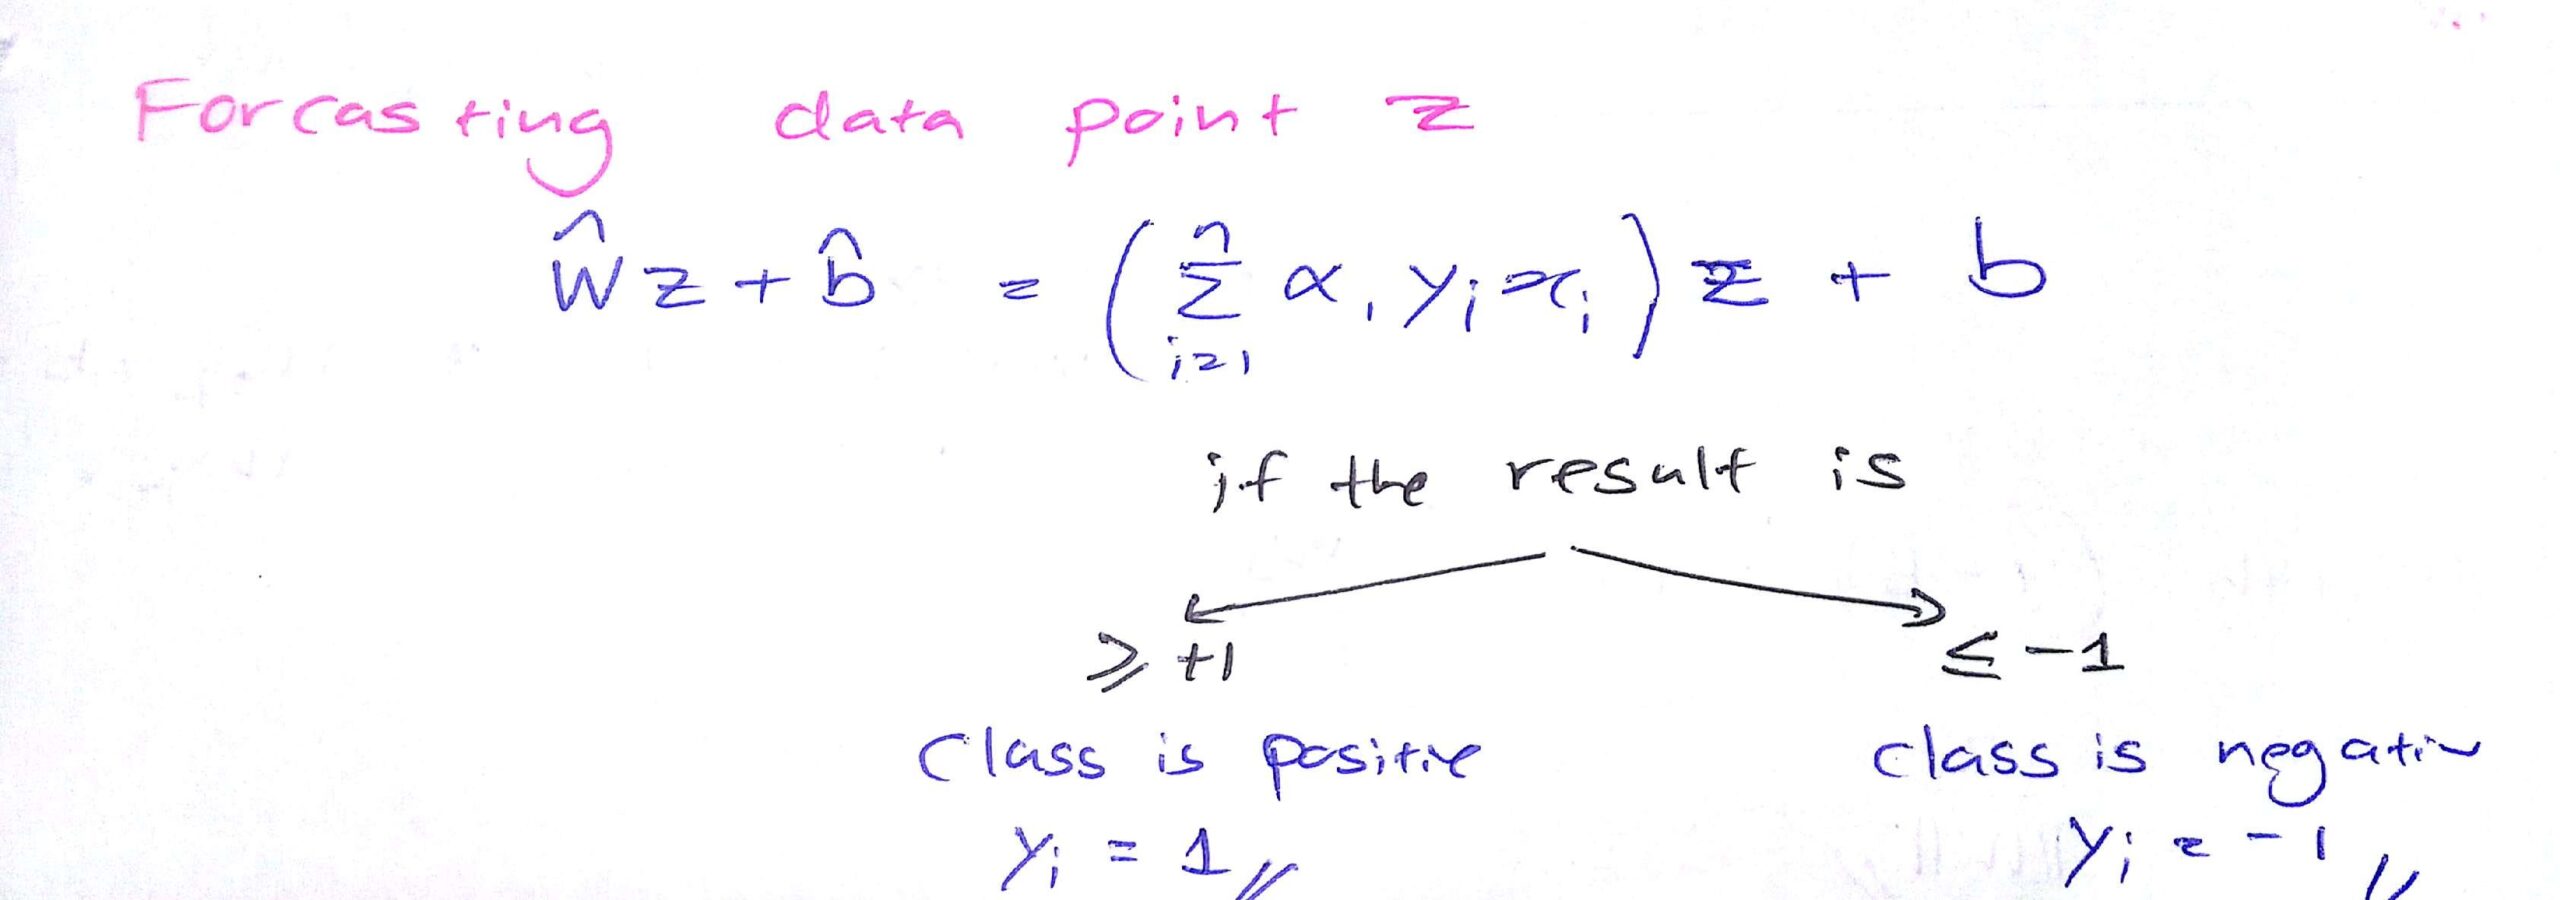 Forcasting data point z
ŵz + b̂ = (∑ⁿᵢ₌₁ αᵢ yᵢ xᵢ) z + b
if the result is
≥ +1 ≤ -1
class is positie class is negativ
yᵢ = 1 // yᵢ = -1 //